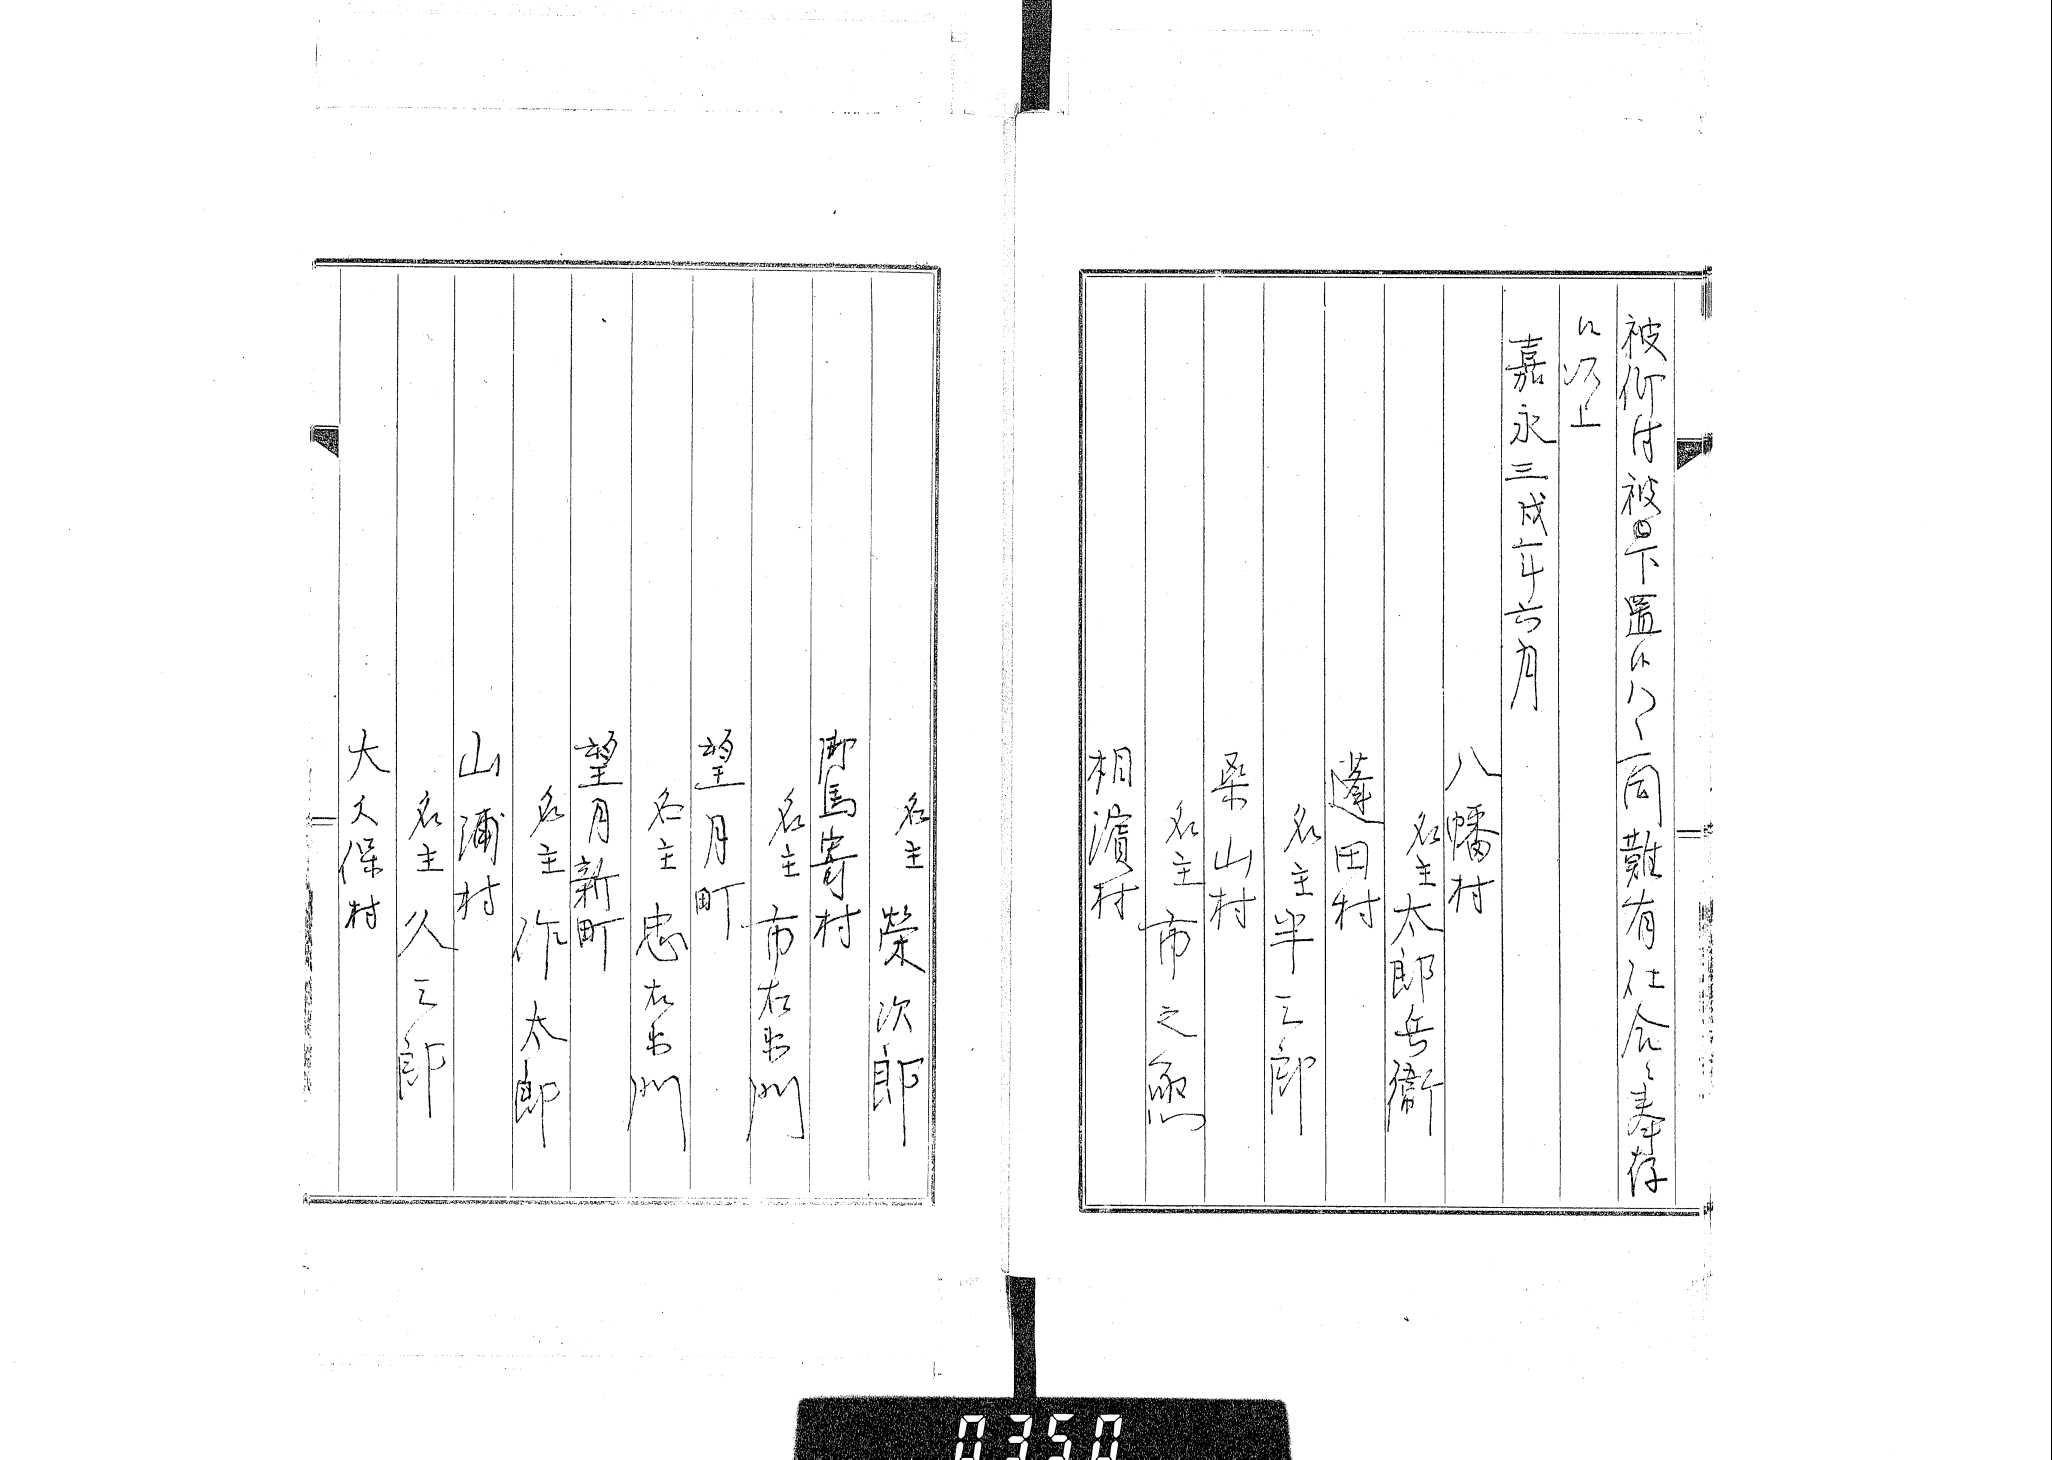 被仰付被下置候ハヽ一同難有仕合ニ奉存
候以上
嘉永三戌年六月
八幡村
名主太郎兵衛
蓬田村
名主半三郎
桑山村
名主市之
相濱村
名主榮次郎
御馬寄村
名主市右衛門
望月町
名主忠右衛門
望月新町
名主作太郎
山浦村
名主久三郎
大久保村
0350